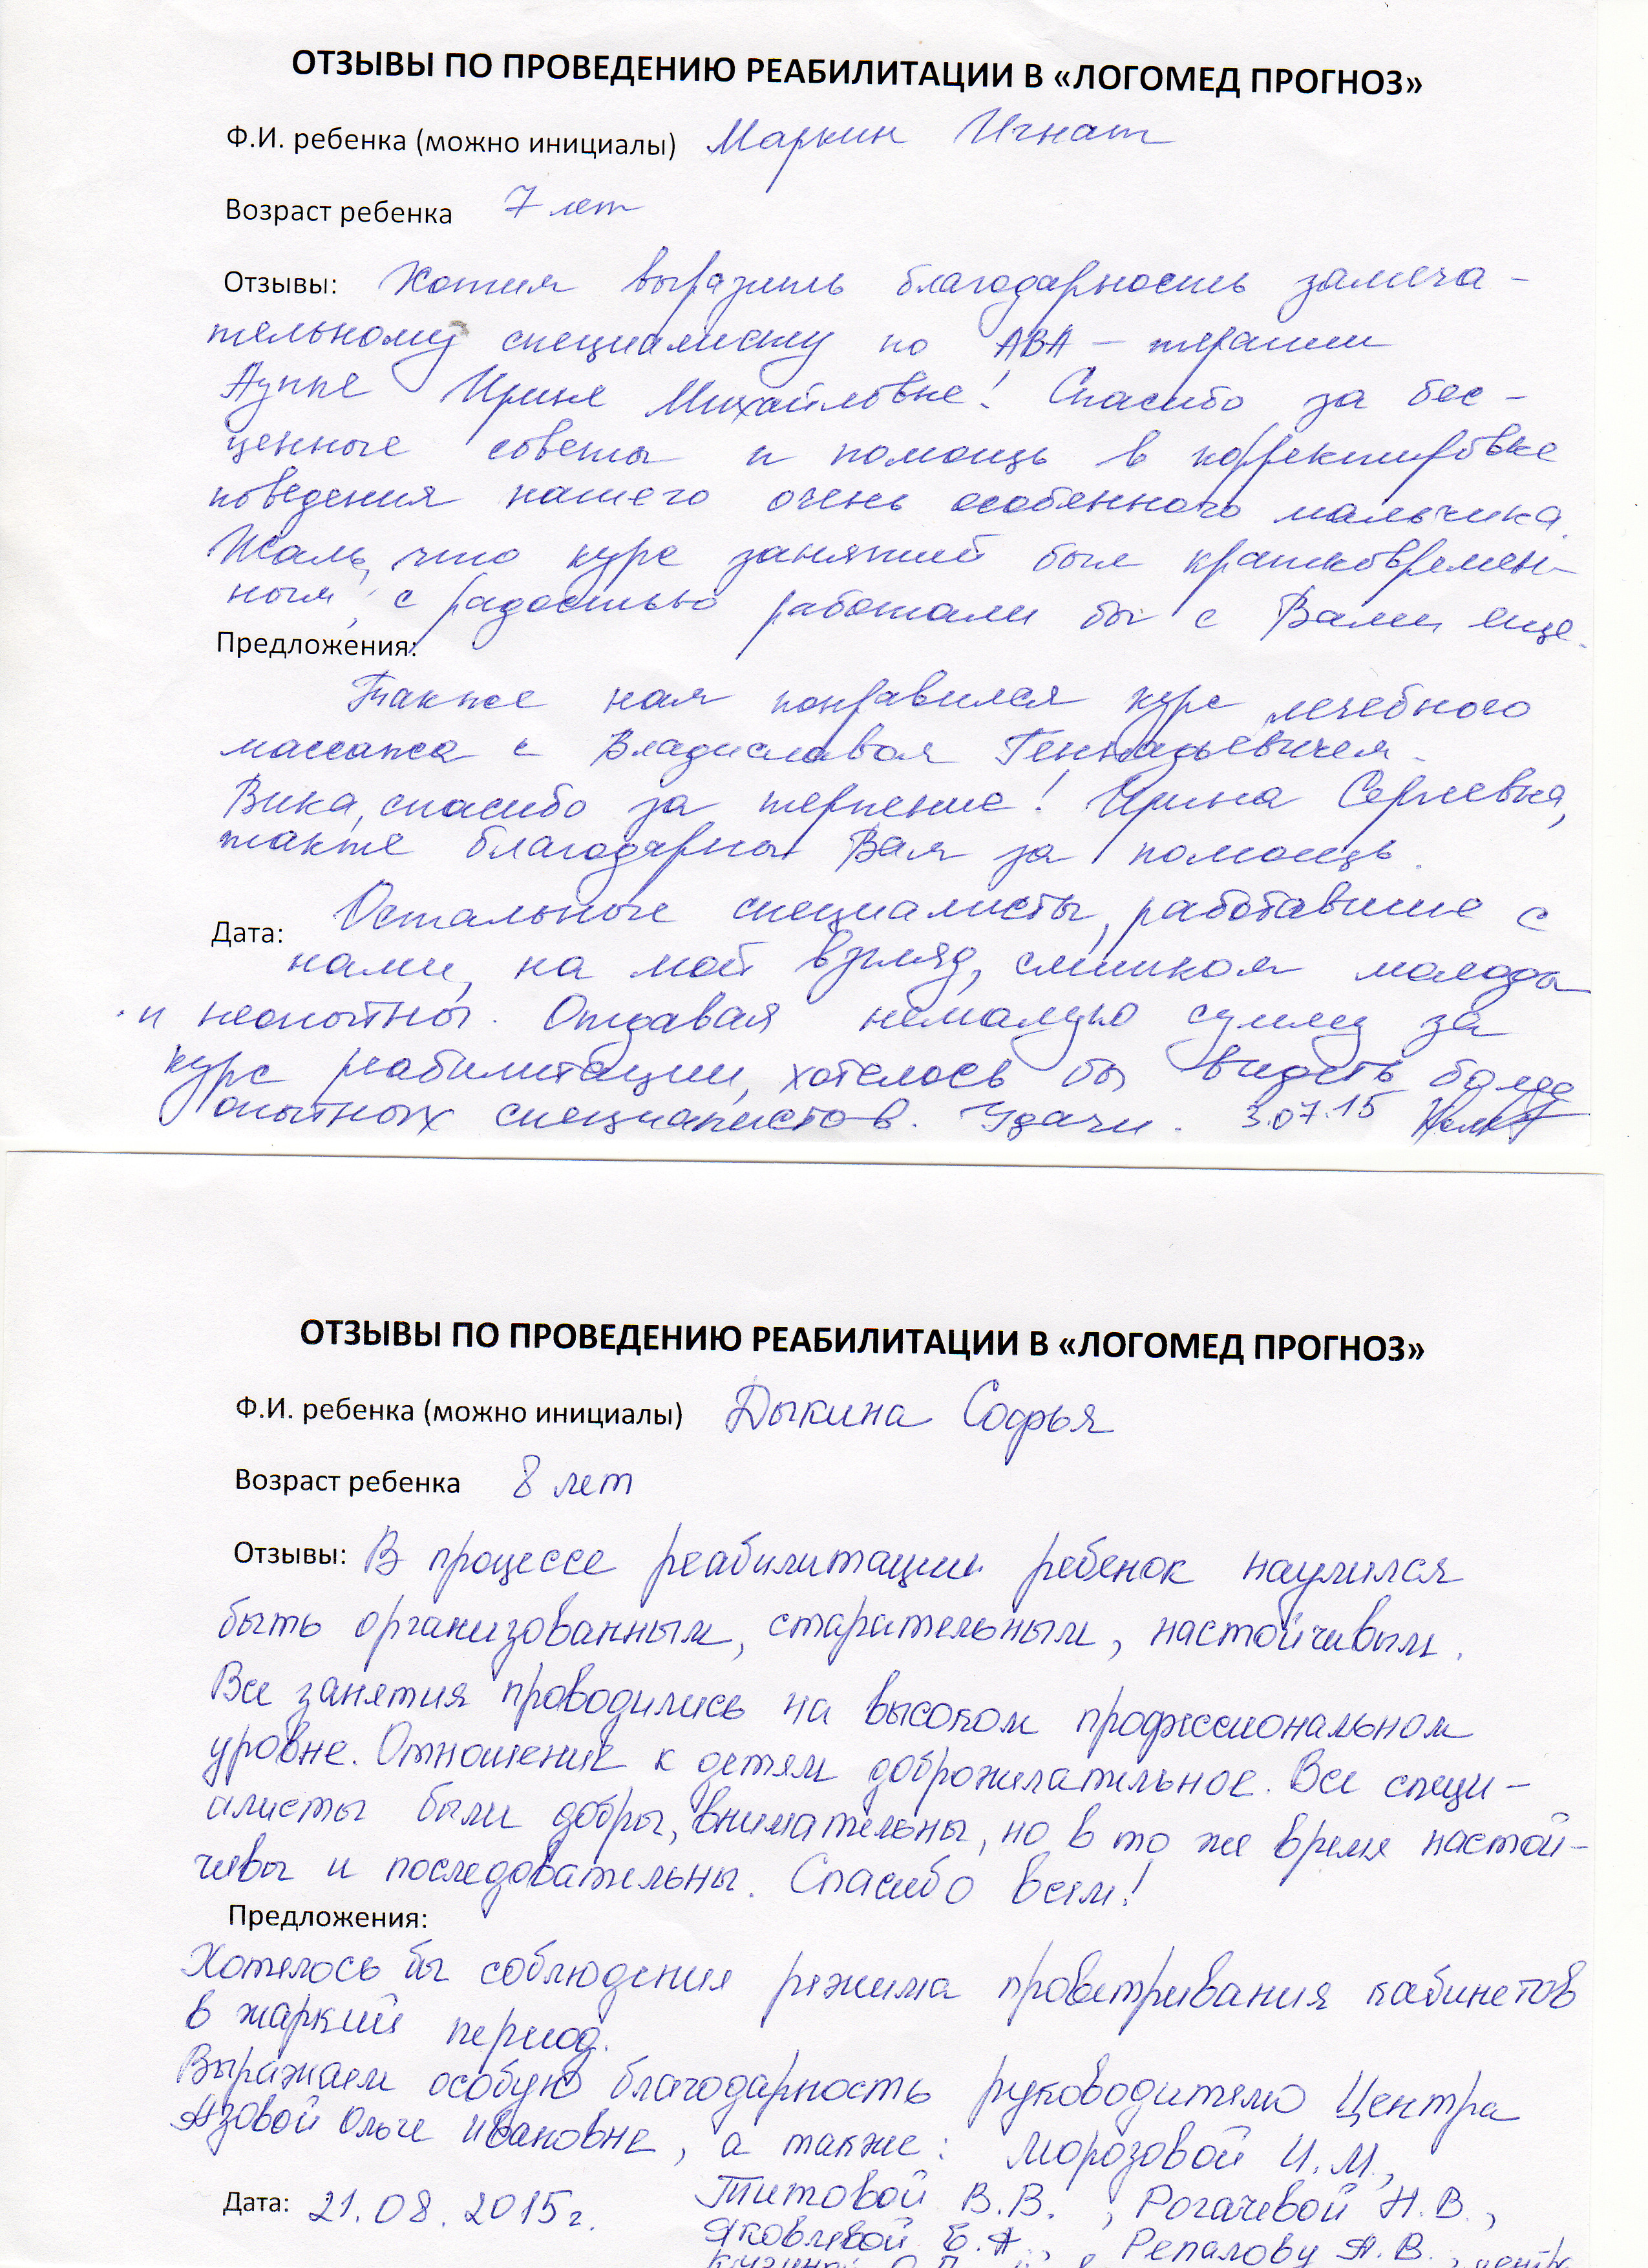 ОТЗЫВЫ ПО ПРОВЕДЕНИЮ РЕАБИЛИТАЦИИ В «ЛОГОМЕД ПРОГНОЗ»
Ф.И. ребенка (можно инициалы) Маркин Игнат
Возраст ребенка 7 лет
Отзывы: Хотим выразить благодарность замеча-
тельному специалисту по АВА - терапии
Ирине Михайловне! Спасибо за бес-
ценные советы и помощь в корректировке
поведения нашего очень особенного мальчика.
Жаль, что курс занятий был кратковремен-
ным, с радостью работали бы с Вами еще.
Предложения:
Также нам понравился курс лечебного
массажа с Владиславом Геннадьевичем.
Вика, спасибо за терпение! Ирина Сергеевна,
также благодарны Вам за помощь.
Остальные специалисты, работавшие с
Дата:
нами, на мой взгляд, слишком молоды
и неопытны. Отдавая немалую сумму за
курс реабилитации, хотелось бы видеть более
опытных специалистов. Удачи. 3.07.15
ОТЗЫВЫ ПО ПРОВЕДЕНИЮ РЕАБИЛИТАЦИИ В «ЛОГОМЕД ПРОГНОЗ»
Ф.И. ребенка (можно инициалы) Дыкина Софья
Возраст ребенка 8 лет
Отзывы: В процессе реабилитации ребенок научился
быть организованным, старательным, настойчивым.
Все занятия проводились на высоком профессиональном
уровне. Отношение к детям доброжелательное. Все специ-
алисты были добры, внимательны, но в то же время настой-
чивы и последовательны. Спасибо всем!
Предложения:
Хотелось бы соблюдения режима проветривания кабинетов
в жаркий период.
Выражаем особую благодарность руководителю Центра
Азовой Ольге Ивановне, а также: Морозовой И.М.,
Титовой В.В., Рогачевой Н.В.,
Дата: 21.08.2015г.
Яковлевой Е.А., Репалову А.В.,